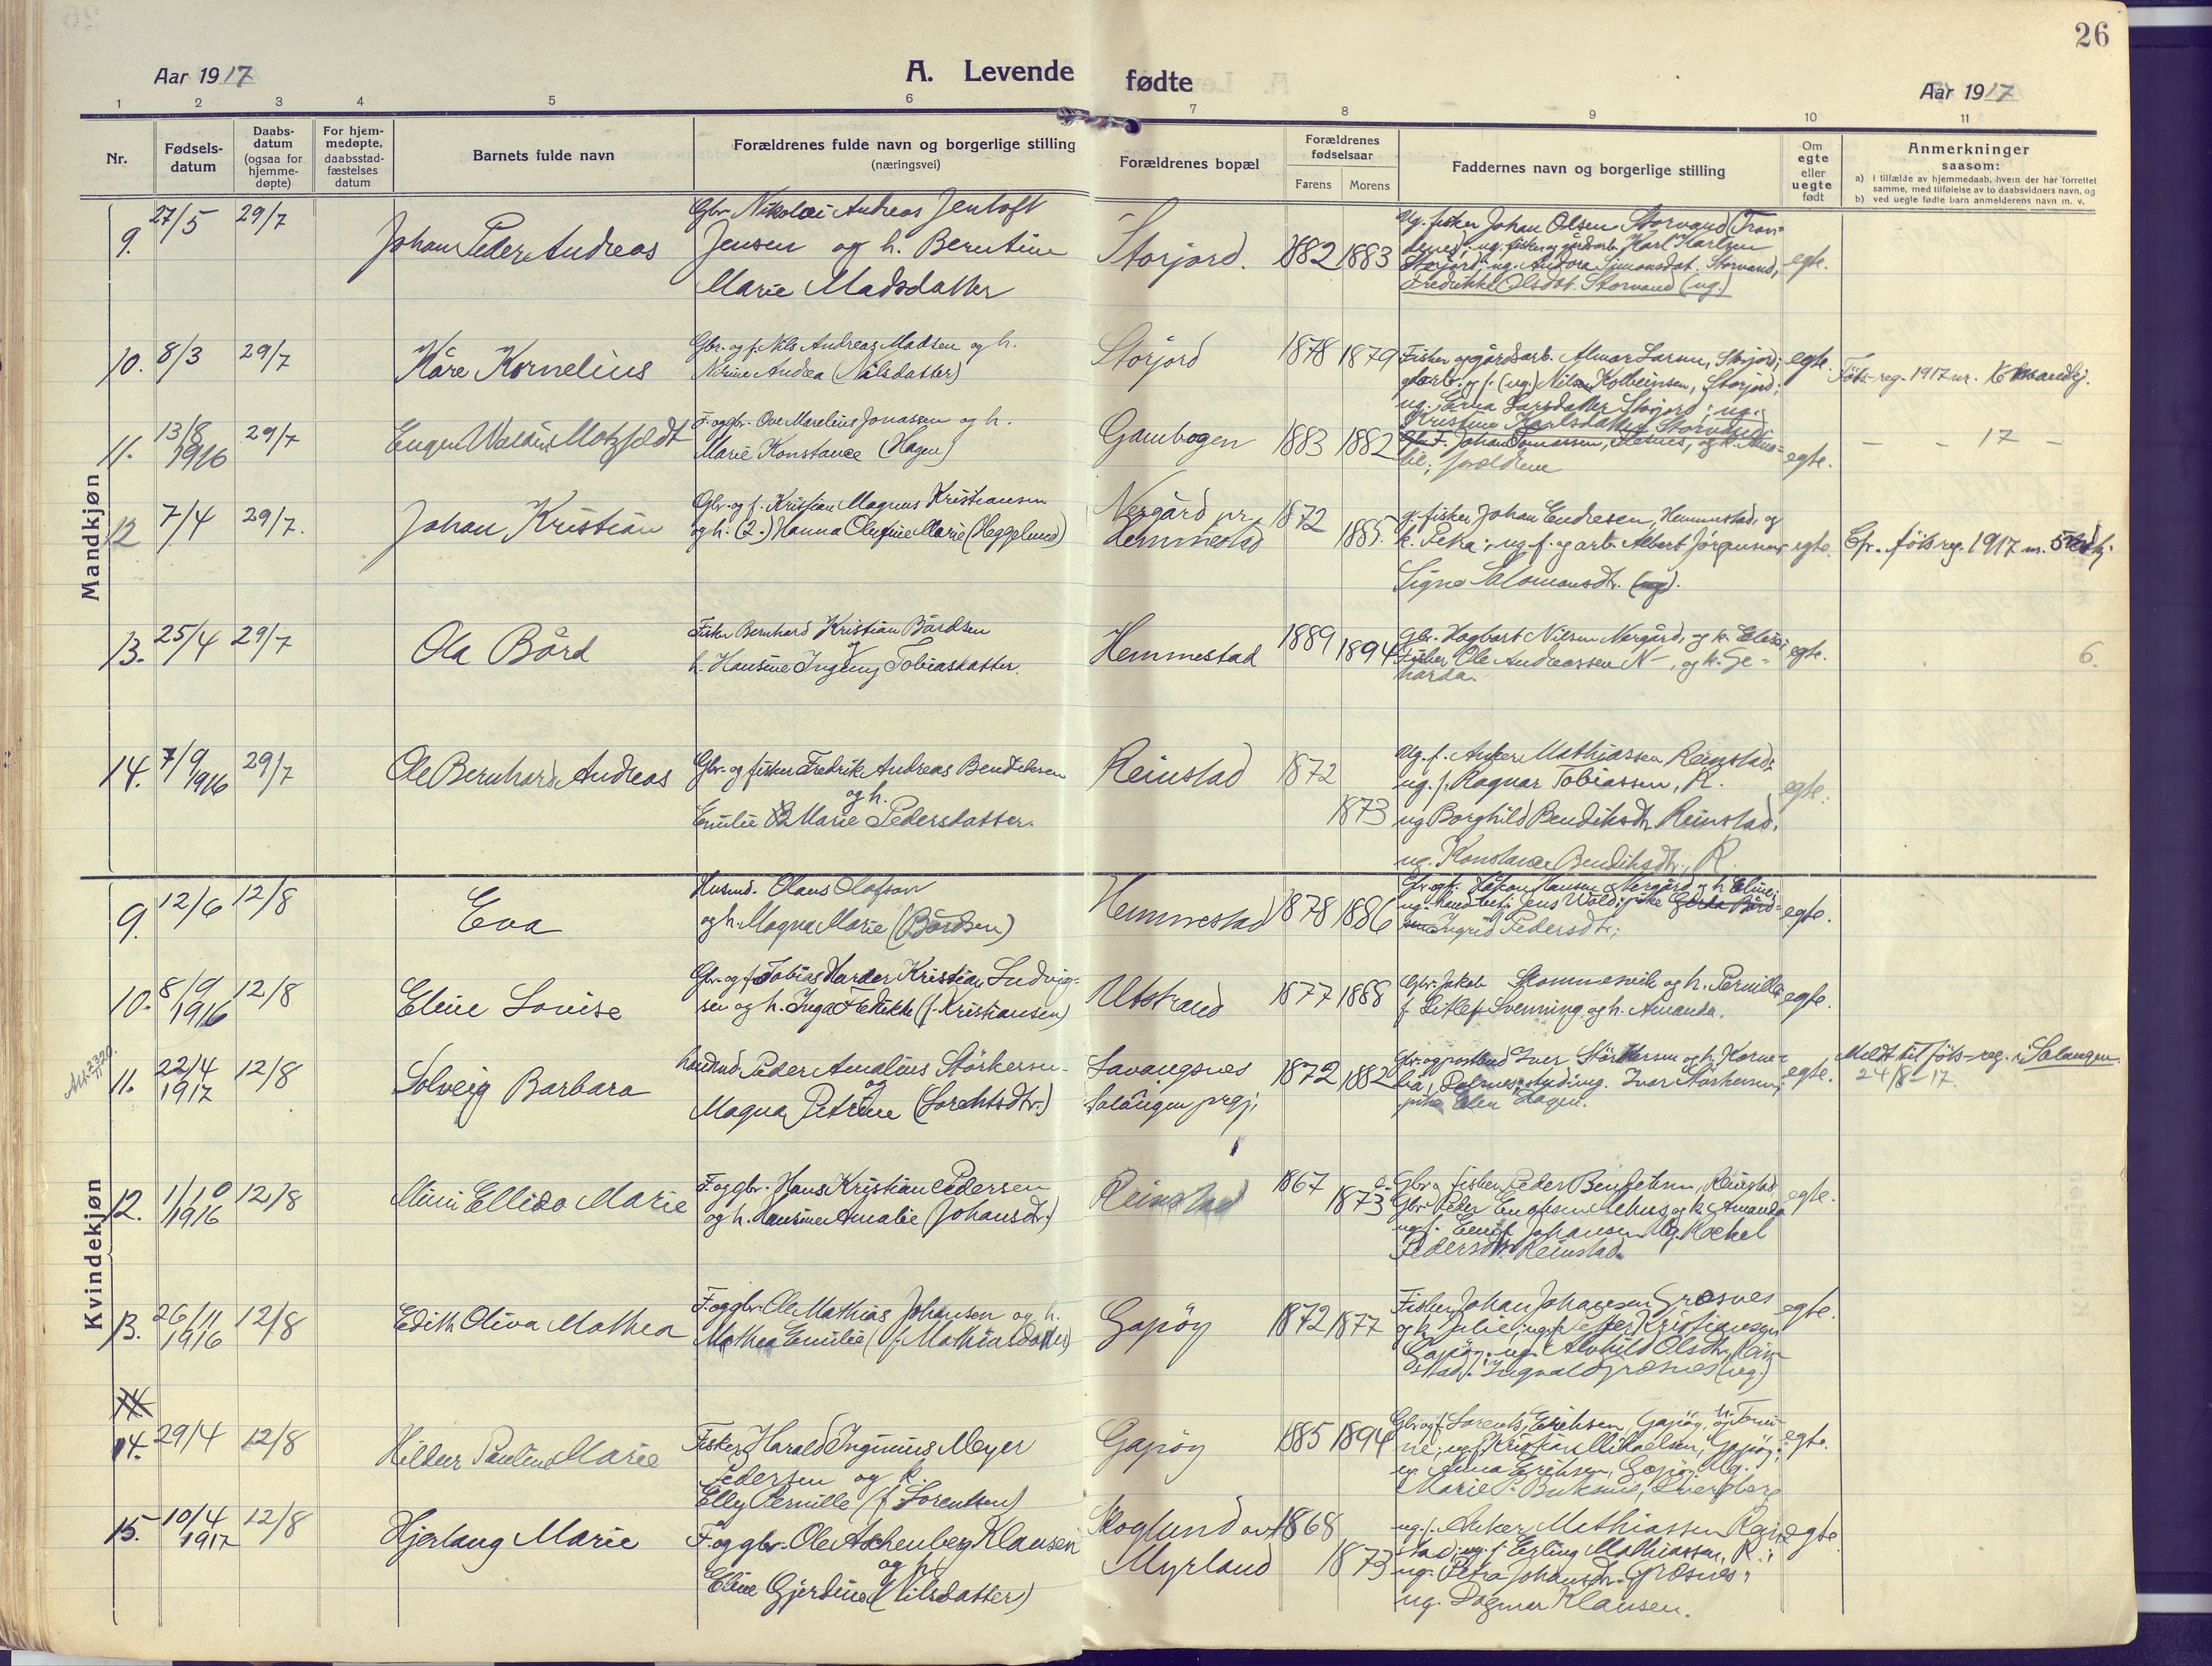 26
Aar 1917
A. Levende fødte
Aar 1917
1 2 3 4 5 6 7 8 9 10 11
Nr.
Fødsels-
datum
Daabs-
datum
(ogsaa for
hjemme-
døpte)
For hjem-
medøpte,
daabsstad-
fæstelses
datum
Barnets fulde navn
Forældrenes fulde navn og borgerlige stilling
(næringsvei)
Forældrenes bopæl
Forældrenes
fødselsaar
Farens Morens
Faddernes navn og borgerlige stilling
Om
egte
eller
uegte
født
Anmerkninger
saasom:
a) i tilfælde av hjemmedaab, hvem der har forrettet
samme, med tilføielse av to daabsvidners navn, og
b) ved uegte fødte barn anmelderens navn m. v.
Mandkjøn
9. 27/5 29/7 Johan Peder Andreas
Gbr. Nikolai Andreas Jentoft
Jensen og h. Berntine
Marie Madsdatter
Storjord. 1882 1883
Ug. fisker Johan Olsen Storvand (Tron-
denes); ug. fisker og gårdsarb. Karl Karlsen
Storjord; ug. Andora Simonsdat. Storvand,
Fredrikke Olsdat. Storvand (ug.)
egte.
10. 8/3 29/7 Kåre Kornelius
Gbr. og f. Nils Andreas Madsen og h.
Nikrine Andrea (Nilsdatter)
Storjord 1878 1879
Fisker og gårdsarb. Almar Larsen, Storjord;
gårdsarb. og f. (ug.) Nilsen Kolbeinsen, Storjord;
ug. Erna Larsdatter Storjord; ug.
Kristine Karlsdatter Storvand;
egte.
Føds-reg. 1917 nr. 16 mandkj.
11. 13/8 1916 29/7 Eugen Waldus Motzfeldt
F. og gbr. Ove Marelius Jonassen og h.
Marie Konstance (Hagen)
Gambogen 1883 1882
F. Johan Tomassen, Stenes, og k. Ama-
lie; forældrene
egte.
- - 17 -
12 7/4 29/7. Johan Kristian
Gbr. og f. Kristian Magnus Kristiansen
og h. (2.) Hanna Olufine Marie (Heggelund)
Nergård pr.
Hemmestad
1872 1885.
g. fisker Johan Endresen, Hemmestad, og
k. Petra; ug. f. og arb. Albert Jørgensen
Signe Salomonsdtr. (ug).
egte.
Cfr. føds.reg. 1917 nr. 5 mdkj.
13. 25/4 29/7 Ola Bård
Fisker Bernhard Kristian Bårdsen
og
h. Hansine Ingeborg Tobiasdatter.
Hemmestad 1889 1894
Gbr. Hagbart Nilsen Nergård, og k. Elise;
Fisker Ole Andreassen N-, og k. Ge-
harda.
egte.
6.
14. 7/9 1916 29/7 Ole Bernhard Andreas
Gbr. og fisker Fredrik Andreas Bendiksen
og h.
Emilie Marie Pedersdatter.
Reinstad 1872 1873
Ug. f. Anker Mathiassen Reinstad;
ug. f. Ragnar Tobiassen, R.
ug Borghild Bendiksdtr. Reinstad,
ug. Konstance Bendiksdtr., R.
egte.
Kvindekjøn
9. 12/6 12/8 Eva
Husmd. Olaus Olafson
og h. Magna Marie (Bårdsen)
Hemmestad 1878 1886
Gbr. og f. Håkon Hansen Nergård og h. Eline;
ug. handbetj. Jens Wold; pike Gerda Bård-
sen Ingrid Pedersdtr.;
egte.
10. 8/9 1916 12/8 Eline Lovise
Gbr. og f. Tobias Harder Kristian Ludvig-
sen og h. Inga Hedikke (f. Kristiansen)
Utstrand 1877 1888
Gbr. Jakob Skommesvik og h. Pernille
f. Ditlef Svenning og h. Amanda.
egte.
11. 22/4 1917 12/8 Solveig Barbara
handmd. Peder Amalius Störkersen
og
Magna Petrine (Lorentsdtr.)
Lavangsnes
Salangen prgj.
1872 1882
Gbr. og postbud Iver Störkersen og h. Korne-
lia, Salnes; stud. ug. Ivar Störkersen;
pike Elen Hagen.
egte.
Meldt til føds-reg. i Salangen
24/8-17.
12. 1/10 1916 12/8 Mimi Ellida Marie
F. og gbr. Hans Kristian Pedersen
og h. Hansine Amalie (Johansdtr.)
Reinstad 1867 1873
Gbr. og fisker Peder Bendiksen, Reinstad
Gbr. Peder Enoksen Aahus og k. Amanda
ug. f. Emil Johansen Ug. Rackel
Pedersdtr. Reinstad.
egte.
13. 26/11 1916 12/8 Edith Oliva Mathea
F. og gbr. Ole Mathias Johansen og h.
Mathea Emilie (f. Mathiasdatter)
Gapøy 1872 1877
Fisker Johan Johansen Grasnes
og k. Julie; ug. f. Peder Kristiansen
Gapøy; ug. Alvhild Olsdtr. Rein-
stad. Ingvald Græsnes (ug.)
egte.
14. 29/4 12/8 Hildur Pauline Marie
Fisker Harald Ingvius Meyer
Pedersen og k.
Elly Pernille (f. Lorentsen)
Gapøy 1885 1894
Gbr. og f. Lorents Eriksen, Gapøy, og h. Tomi-
ne; ug. f. Kristian Mikaelsen, Gapøy;
ug. Anna Eriksen, Gapøy. Ug.
Marie P. Buksnes, Sverrberg
egte.
15. 10/4 1917 12/8 Hjerlaug Marie
F. og gbr. Ole Aschenberg Klausen
og h.
Eline Gjerdine (Nilsdatter)
Skoglund av
Myrland
1868 1873
ug. f. Anker Mathiassen Rein-
stad; ug. f. Erling Mathiassen, R.;
ug. Petra Johansdtr. Græsnes;
ug. Dagmar Klausen.
egte.